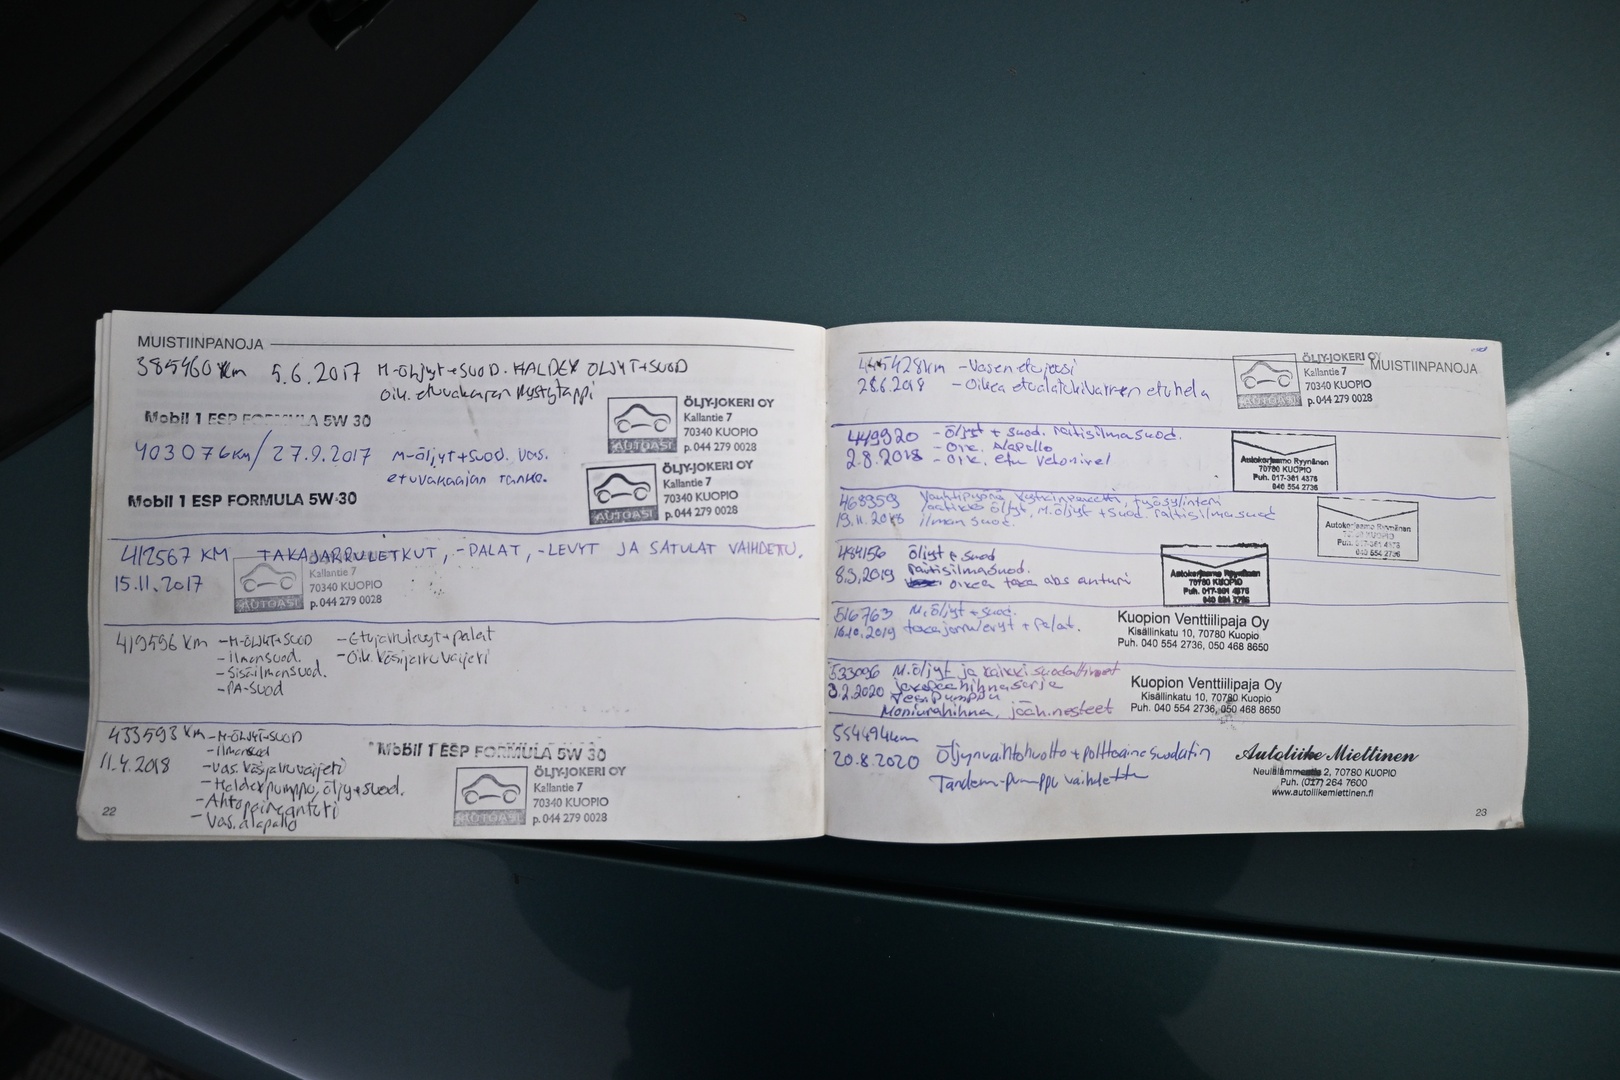 MUISTIINPANOJA
385460 km 5.6.2017 M-öljyt+suod. HALDEX ÖLJYT+SUOD
Oik. etuvakaajan
Mobil 1 ESP FORMULA 5W 30
ÖLJY-JOKERI OY
Kallantie 7
70340 KUOPIO
p. 044 279 0028
AUTOASI
403076 km/ 27.9.2017 M-öljyt+suod. vas.
etuvakaajan tanko.
Mobil 1 ESP FORMULA 5W-30
ÖLJY-JOKERI OY
Kallantie 7
70340 KUOPIO
p. 044 279 0028
AUTOASI
412567 KM TAKAJARRULETKUT, -PALAT, -LEVYT JA SATULAT VAIHDETTU.
15.11.2017
Kallantie 7
70340 KUOPIO
p. 044 279 0028
AUTOASI
419596 km -M-ÖLJYT+SUOD -Etujarrulevyt+palat
-Ilmansuod. -Oik. käsijarruvaijeri
-Sisäilmansuod.
-PA-suod
433593 km -M-ÖLJYT+SUOD
11.4.2018 -Ilmansuod
-vas. käsijarruvaijeri
-Haldexpumppu, öljy+suod.
-Ahtopaineanturi
-Vas. alapallo
Mobil 1 ESP FORMULA 5W 30
ÖLJY-JOKERI OY
Kallantie 7
70340 KUOPIO
p. 044 279 0028
AUTOASI
22
MUISTIINPANOJA
445428km -Vasen etujousi
28.6.2018 -Oikea etualatukivarren etuhela
ÖLJY-JOKERI OY
Kallantie 7
70340 KUOPIO
p. 044 279 0028
AUTOASI
449920 - Öljyt + suod. raitisilmasuod.
2.8.2018 - Oik. Alapallo
- Oik. etu vetonivel
Autokorjaamo Ryynänen
70780 KUOPIO
Puh. 017-361 4376
040 554 2736
463359 Vauhtipyörä, kytkinpaketti, työsylinteri
19.11.2018 laatikko öljyt, M.öljyt + suod. raitisilmasuod
ilman suod.
Autokorjaamo Ryynänen
70780 KUOPIO
Puh. 017-361 4376
040 554 2736
484156 öljyt + suod
8.3.2019 raitisilmasuod.
oikea taka abs anturi
Autokorjaamo Ryynänen
70780 KUOPIO
Puh. 017-361 4376
040 554 2736
516763 M.öljyt + suod.
16.10.2019 takajarrulevyt + palat.
Kuopion Venttiilipaja Oy
Kisällinkatu 10, 70780 Kuopio
Puh. 040 554 2736, 050 468 8650
533006 M.öljyt ja kaikki suodattimet
3.2.2020 jakopäähihnasarja
vesipumppu
Moniurahihna, jääh.nesteet
Kuopion Venttiilipaja Oy
Kisällinkatu 10, 70780 Kuopio
Puh. 040 554 2736, 050 468 8650
554494km
20.8.2020 Öljynvaihtohuolto + polttoainesuodatin
Tandem-pumppu vaihdettu
Autoliike Miettinen
Neulalammentie 2, 70780 KUOPIO
Puh. (017) 264 7600
www.autoliikemiettinen.fi
23